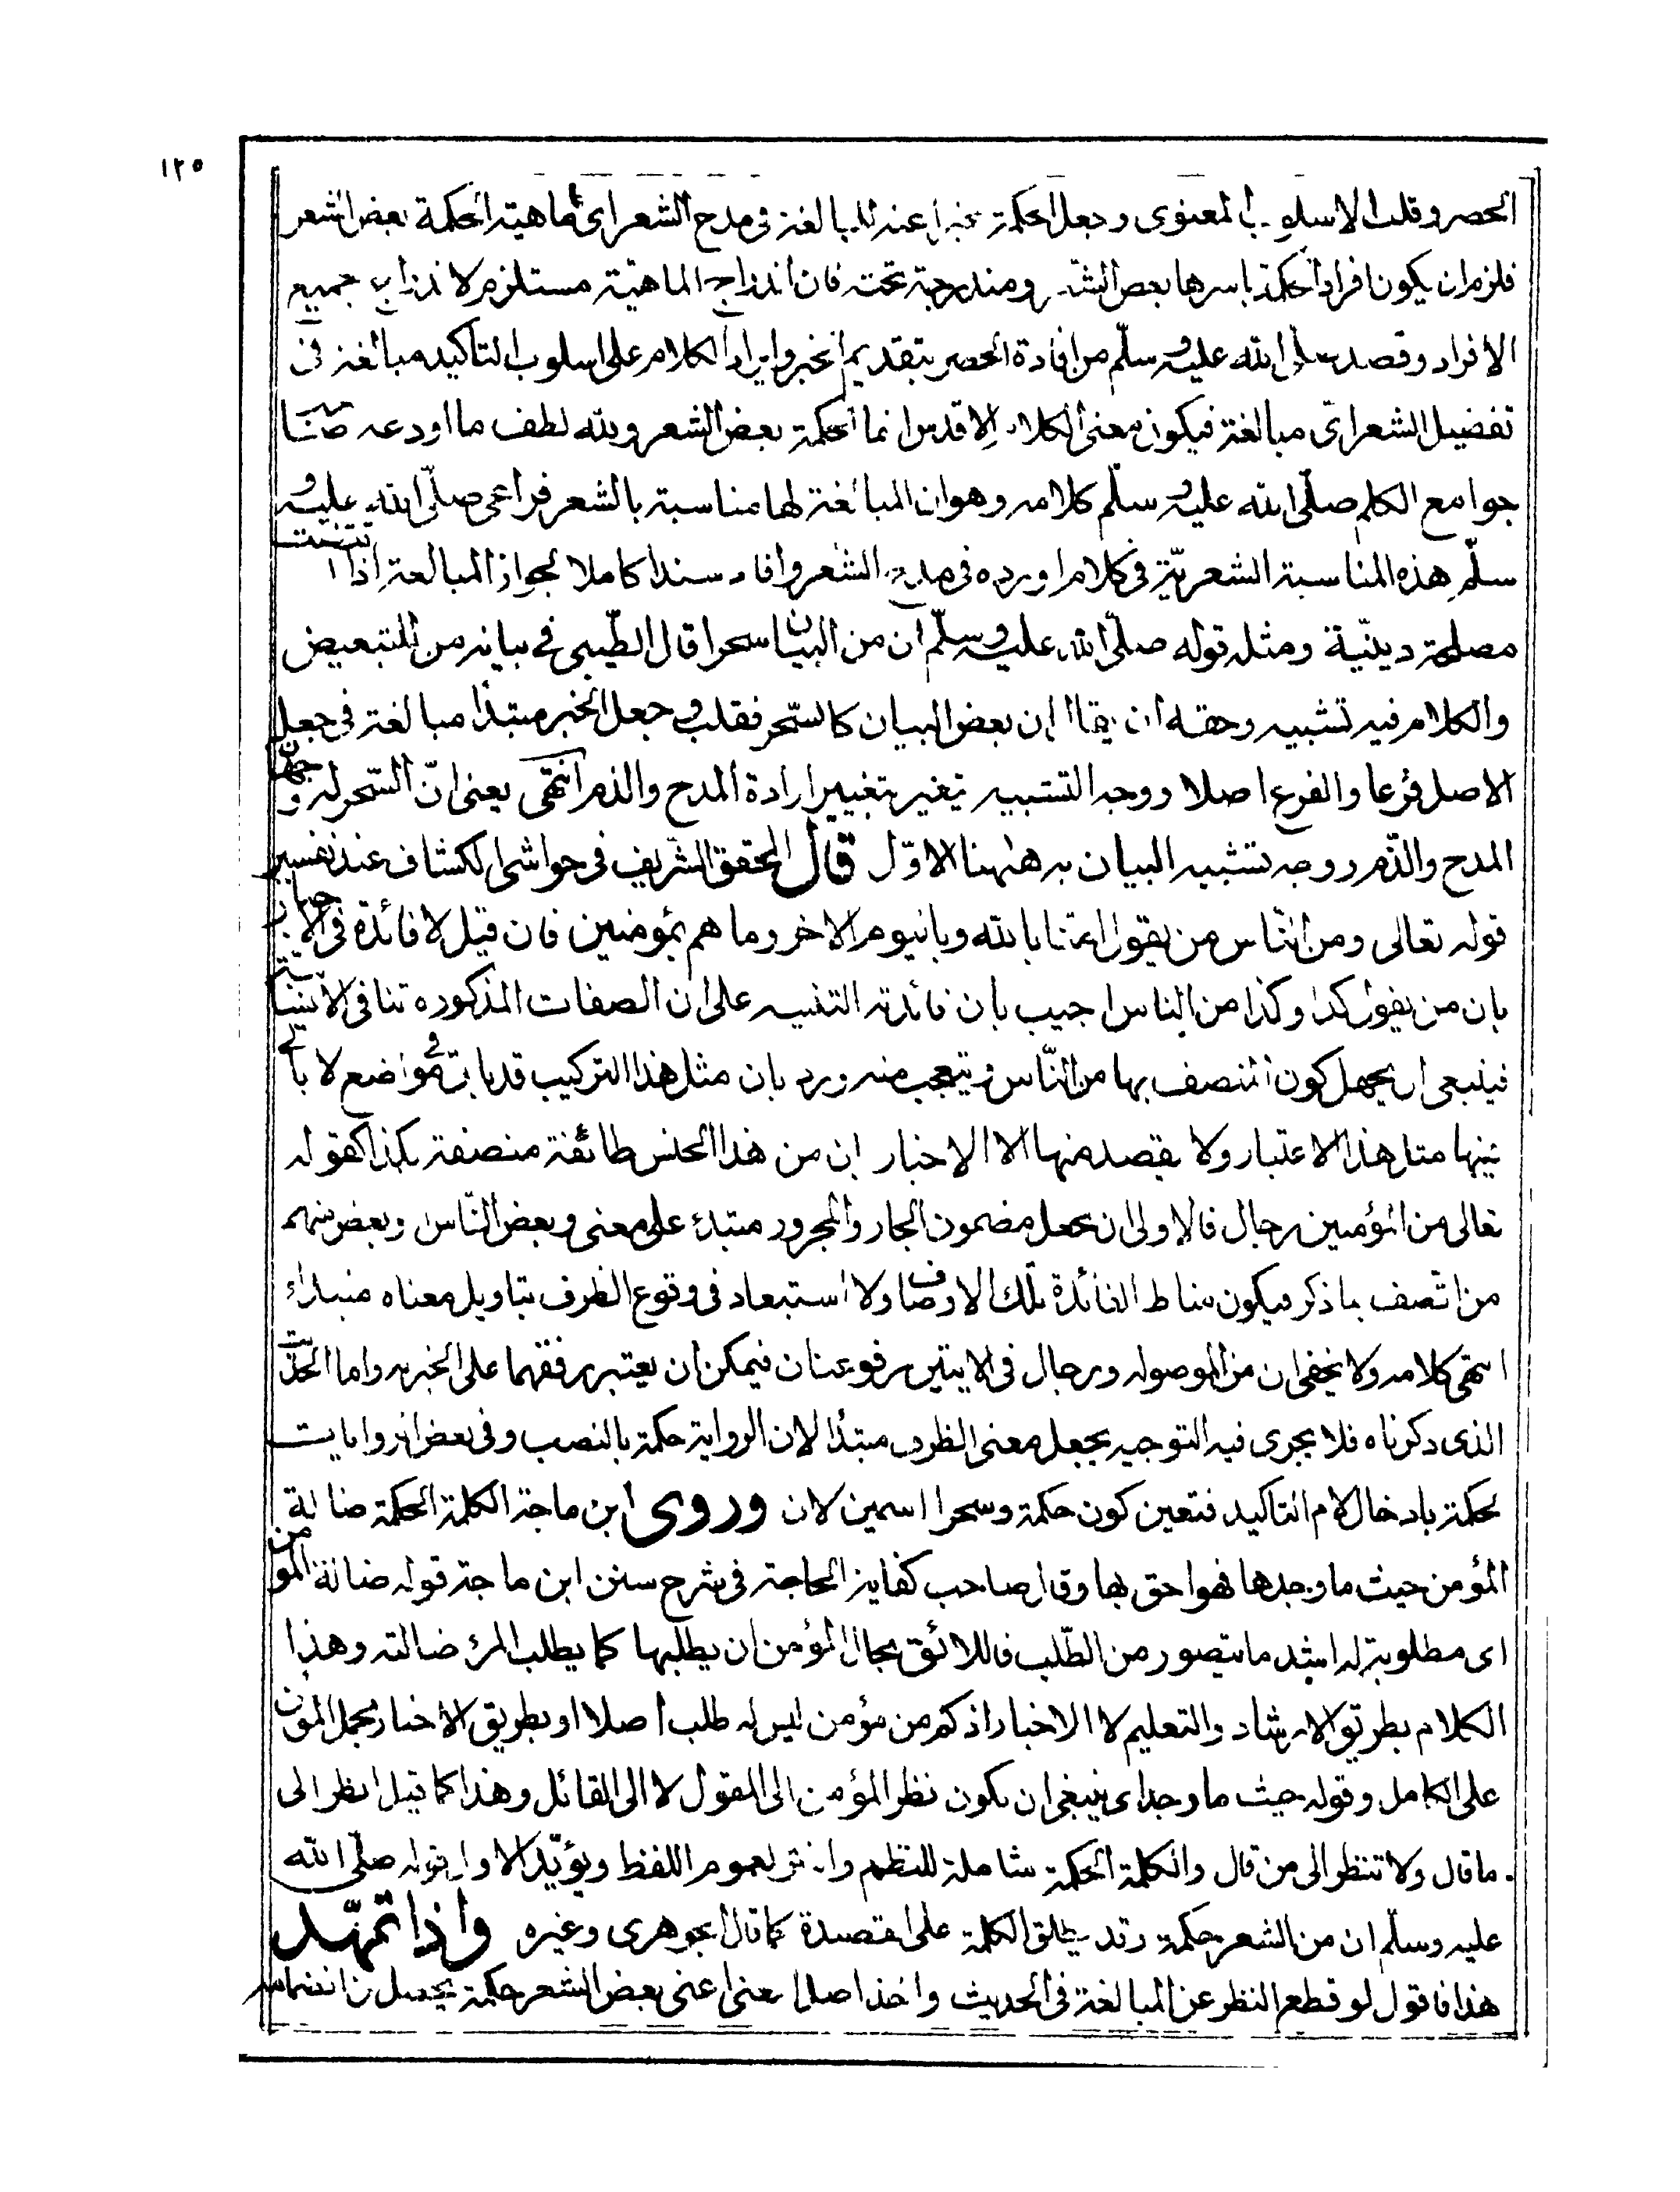 ١٢٥
الحصر وقلب الاسلوب المعنوى وجعل الحكمة مخبرا عنه للمبالغة فى مدح الشعر اى ماهية الحكمة بعض الشعر
فلزم ان يكون افراد الحكمة باسرها بعض الشعر ومندرجة تحته فان اندراج الماهية مستلزم لاندراج جميع
الافراد وقصد صلى الله عليه وسلّم من افادة الحصر بتقديم الخبر وايراد الكلام على اسلوب التاكيد مبالغة فى
تفضيل الشعر اىّ مبالغة فيكون معنى الكلام الاقدس انما الحكمة بعض الشعر ولله لطف ما اودعه صاحب
جوامع الكلم صلّى الله عليه وسلّم كلامه وهو ان المبالغة لها مناسبة بالشعر فراعى صلّى الله عليه و
سلّم هذه المناسبة الشعريّة فى كلام اورده فى مدح الشعر وافاد سندا كاملا لجواز المبالغة اذا اقتضت
مصلحة دينيّة ومثله قوله صلّى الله عليه وسلّم ان من البيان سحرا قال الطّيبى فى بيانه من للتبعيض
والكلام فيه تشبيه وحقه ان يقال ان بعض البيان كالسّحر فقلب وجعل الخبر مبتدأ مبالغة فى جعل
الاصل فرعا والفرع اصلا ووجه التشبيه يتغير بتغيير ارادة المدح والذم انتهى يعنى انّ السّحر له وجهان
المدح والذّم ووجه تشبيه البيان به هٰهنا الاوّل قال المحقق الشريف فى حواشى الكشاف عند تفسير
قوله تعالى ومن النّاس من يقول امنا بالله وباليوم الاخر وما هم بمؤمنين فان قيل لا فائدة فى الاخبار
بان من يقول كذا وكذا من الناس اجيب بان فائدته التنبيه على ان الصفات المذكوره تنافى الانسانية
فينبغى ان يجهل كون المتصف بها من النّاس ويتعجب منه ورد بان مثل هذا التركيب قد ياتى فى مواضع لا ياتى
فيها مثل هذا الاعتبار ولا يقصد منها الا الاخبار ان من هذا الجنس طائفة متصفة بكذا كقوله
تعالى من المؤمنين رجال فالاولى ان يجعل مضمون الجار والمجرور مبتدء على معنى وبعض النّاس وبعض منهم
من اتّصف بما ذكر فيكون مناط الفائدة تلك الاوصاف ولا استبعاد فى وقوع الظرف بتاويل معناه مبتداء
انتهى كلامه ولا يخفى ان من الموصوله ورجال فى الايتين مرفوعتان فيمكن ان يعتبر رفعهما على الخبريه واما الحديث
الذى ذكرناه فلا يجرى فيه التوجيه بجعل معنى الظرف مبتدأ لان الرواية حكمة بالنصب وفى بعض الروايات
لحكمة بادخال لام التاكيد فتعين كون حكمة وسحرا اسمين لان وروى ابن ماجة الكلمة الحكمة ضالة
المؤمن حيث ما وجدها فهو احق بها وقال صاحب كفاية الحاجة فى شرح سنن ابن ماجة قوله ضالة المؤمن
اى مطلوبة له اشد ما يتصور من الطّلب فاللائق بحال المؤمن ان يطلبها كما يطلب المرء ضالته وهذا
الكلام بطريق الارشاد والتعليم لا الاخبار اذ كم من مؤمن ليس له طلب اصلا او بطريق الاخبار بحمل المؤمن
على الكامل وقوله حيث ما وجد اى ينبغى ان يكون نظر المؤمن الى المقول لا الى القائل وهذا كما قيل انظر الى
ما قال ولا تنظر الى من قال والكلمة الحكمة شاملة للنظم والنثر لعموم اللفظ ويؤيّد الاول قوله صلّى الله
عليه وسلّم ان من الشعر حكمة وقد يطلق الكلمة على القصيدة كما قال الجوهرى وغيره واذا تمهّد
هذا فاقول لو قطع النظر عن المبالغة فى الحديث واخذ اصل المعنى اعنى بعض الشعر حكمة يحصل من انضمامه